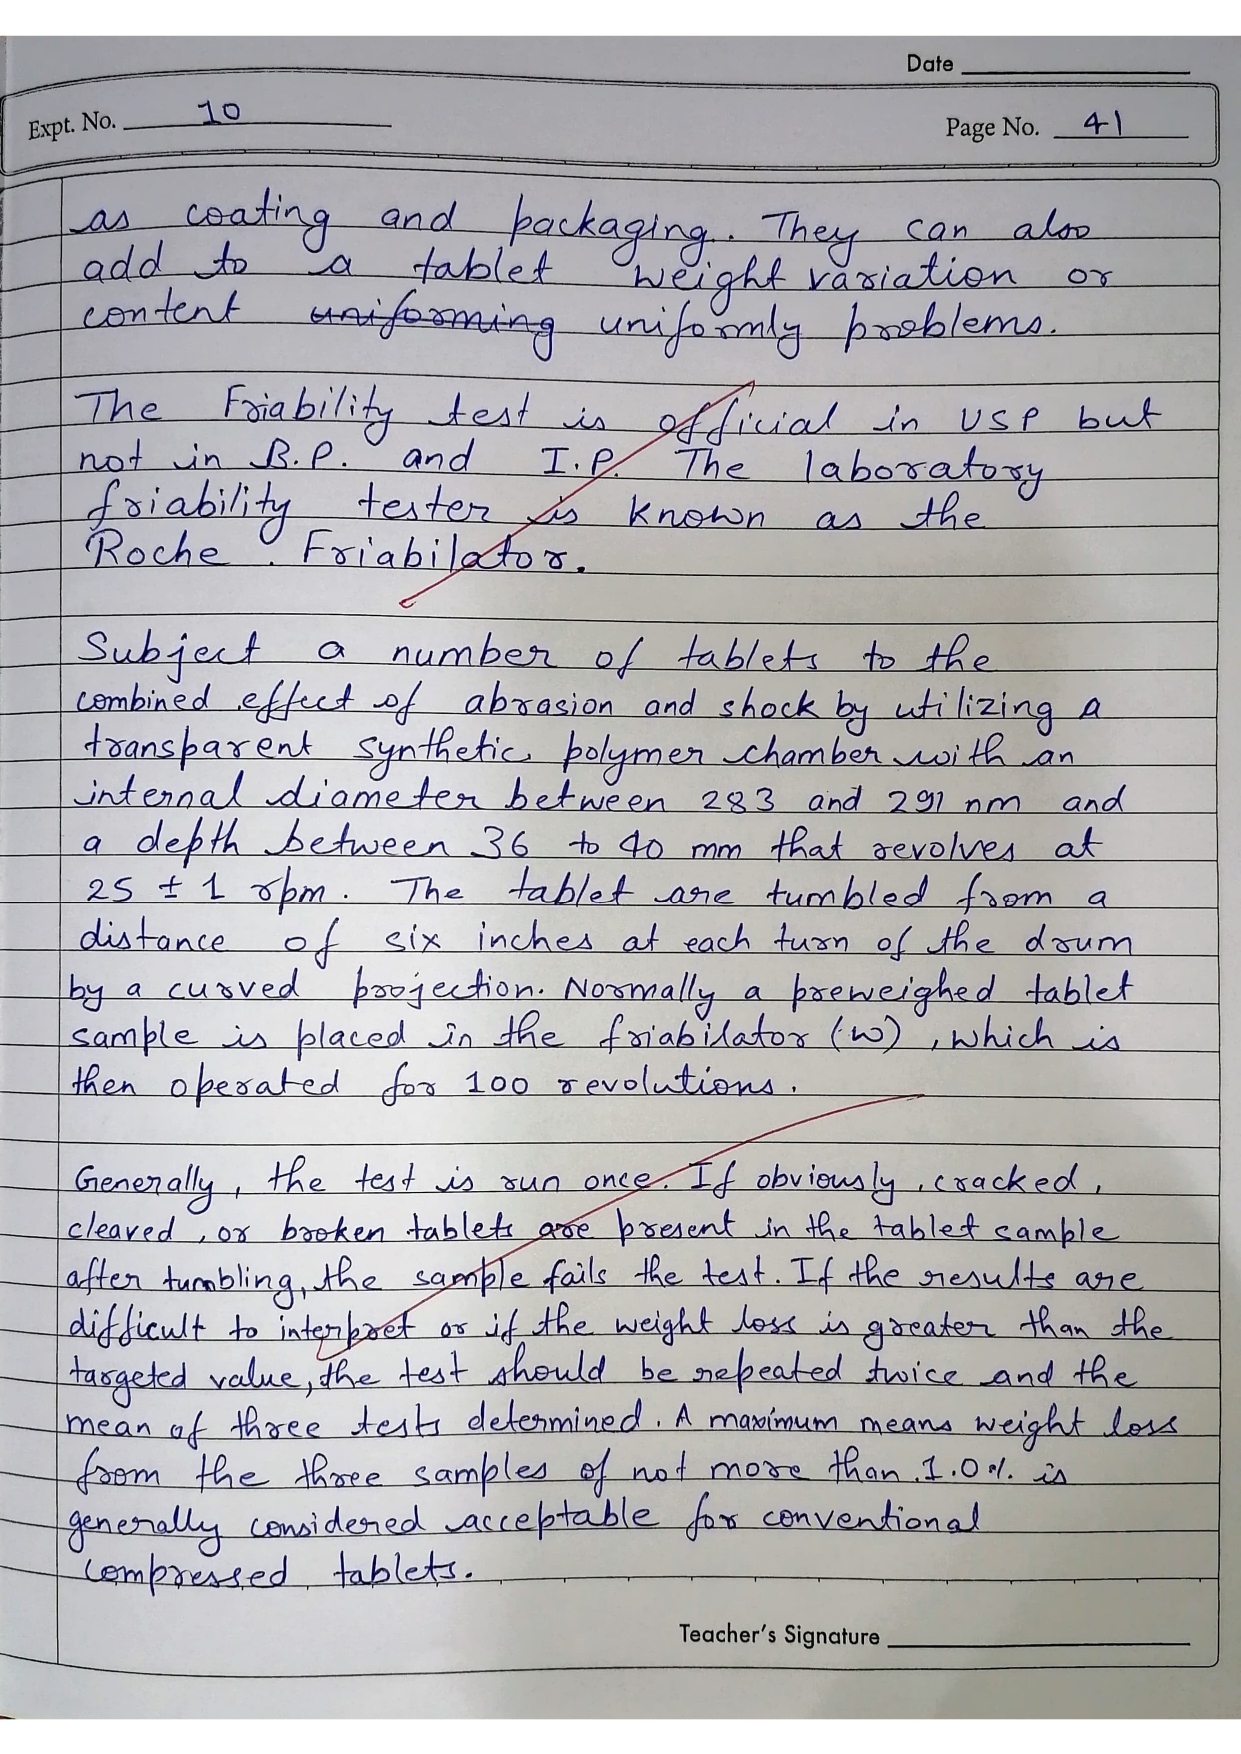 Date
Expt. No. 10
Page No. 41
as coating and packaging. They can also
add to a tablet weight variation or
content uniforming uniformly problems.
The Friability test is official in USP but
not in B.P. and I.P. The laboratory
friability tester is known as the
Roche Friabilator.
Subject a number of tablets to the
combined effect of abrasion and shock by utilizing a
transparent synthetic polymer chamber with an
internal diameter between 283 and 291 nm and
a depth between 36 to 40 mm that revolves at
25 ± 1 rpm. The tablet are tumbled from a
distance of six inches at each turn of the drum
by a curved projection. Normally a preweighed tablet
sample is placed in the friabilator (w), which is
then operated for 100 revolutions.
Generally, the test is run once. If obviously, cracked,
cleaved, or broken tablets are present in the tablet sample
after tumbling, the sample fails the test. If the results are
difficult to interpret or if the weight loss is greater than the
targeted value, the test should be repeated twice and the
mean of three tests determined. A maximum means weight loss
from the three samples of not more than 1.0% is
generally considered acceptable for conventional
compressed tablets.
Teacher's Signature